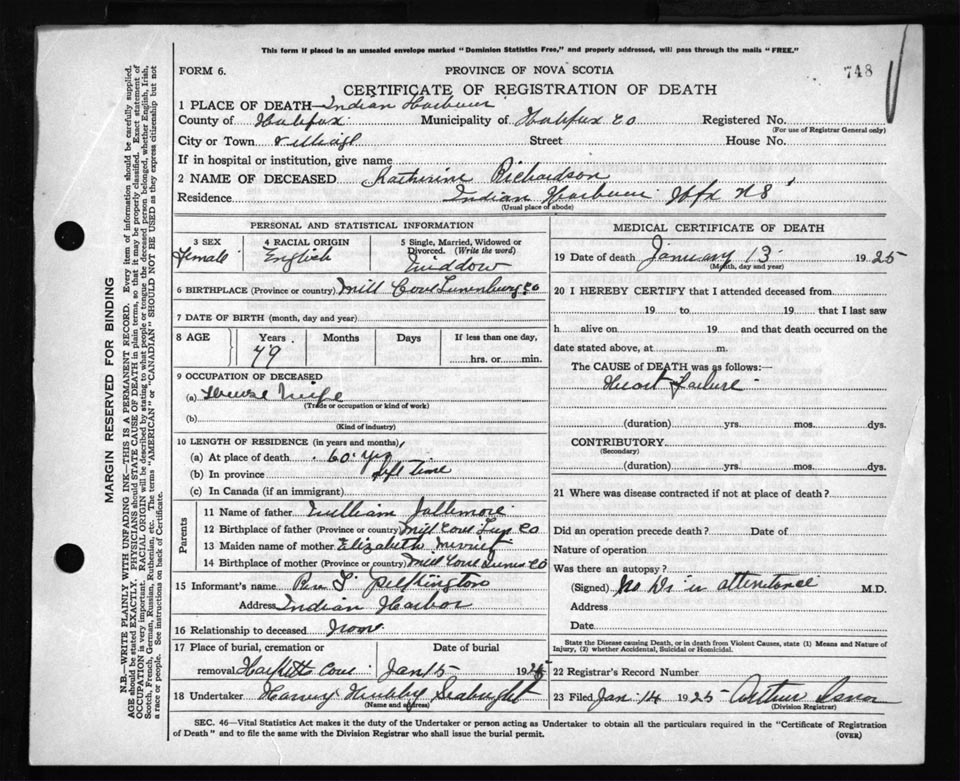 This form if placed in an unsealed envelope marked "Dominion Statistics Free," and properly addressed, will pass through the mails "FREE."
FORM 6.
PROVINCE OF NOVA SCOTIA
748
CERTIFICATE OF REGISTRATION OF DEATH
1 PLACE OF DEATH—Indian Harbour
County of Halifax Municipality of Halifax Co Registered No.
(For use of Registrar General only)
City or Town Village Street House No.
If in hospital or institution, give name
2 NAME OF DECEASED Katherine Richardson
Residence Indian Harbour Hfx NS
(Usual place of abode)
PERSONAL AND STATISTICAL INFORMATION
3 SEX Female
4 RACIAL ORIGIN English
5 Single, Married, Widowed or Divorced. (Write the word) Widdow
6 BIRTHPLACE (Province or country) Mill Cove Lunenburg Co
7 DATE OF BIRTH (month, day and year)
8 AGE Years Months Days If less than one day,
79 hrs. or min.
9 OCCUPATION OF DECEASED
(a) House Wife
(Trade or occupation or kind of work)
(b)
(Kind of industry)
10 LENGTH OF RESIDENCE (in years and months)
(a) At place of death 60 yrs
(b) In province Life time
(c) In Canada (if an immigrant)
Parents
11 Name of father William Jollimore
12 Birthplace of father (Province or country) Mill Cove Lun Co
13 Maiden name of mother Elizabeth
14 Birthplace of mother (Province or country) Mill Cove Lunen Co
15 Informant's name L Pilkington
Address Indian Harbor
16 Relationship to deceased None
17 Place of burial, cremation or removal Hacketts Cove
Date of burial Jan 15 1925
18 Undertaker Harvey Hubley Seabright
(Name and address)
MEDICAL CERTIFICATE OF DEATH
19 Date of death January 13 1925
(Month, day and year)
20 I HEREBY CERTIFY that I attended deceased from
19 to 19 that I last saw
h alive on 19 and that death occurred on the
date stated above, at m.
The CAUSE of DEATH was as follows:
Heart Failure
(duration) yrs. mos. dys.
CONTRIBUTORY
(Secondary)
(duration) yrs. mos. dys.
21 Where was disease contracted if not at place of death?
Did an operation precede death? Date of
Nature of operation
Was there an autopsy?
(Signed) No Dr in attentance M.D.
Address
Date
State the Disease causing Death, or in death from Violent Causes, state (1) Means and Nature of
Injury, (2) whether Accidental, Suicidal or Homicidal.
22 Registrar's Record Number
23 Filed Jan 14 1925 Arthur
(Division Registrar)
SEC. 46—Vital Statistics Act makes it the duty of the Undertaker or person acting as Undertaker to obtain all the particulars required in the "Certificate of Registration
of Death" and to file the same with the Division Registrar who shall issue the burial permit.
(OVER)
MARGIN RESERVED FOR BINDING
N.B.—WRITE PLAINLY WITH UNFADING INK—THIS IS A PERMANENT RECORD. Every item of information should be carefully supplied.
AGE should be stated EXACTLY. PHYSICIANS should STATE CAUSE OF DEATH in plain terms, so that it may be properly classified. Exact statement of
OCCUPATION is very important. RACIAL ORIGIN will be described by stating to what people or tongue the deceased person belonged, whether English, Irish,
Scotch, French, German, Russian, Ruthenian, etc. The terms "AMERICAN" or "CANADIAN" SHOULD NOT BE USED as they express citizenship but not
a race or people. See instructions on back of Certificate.